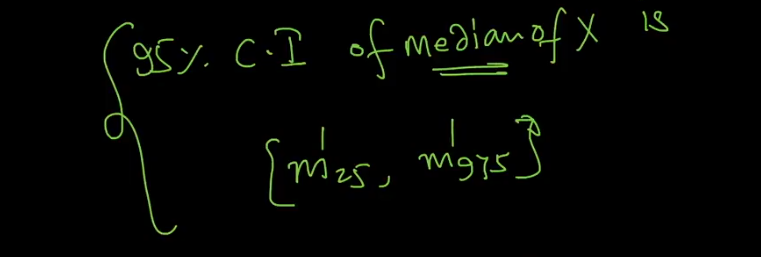 95%. C.I of median of X is
[m'25, m'975]